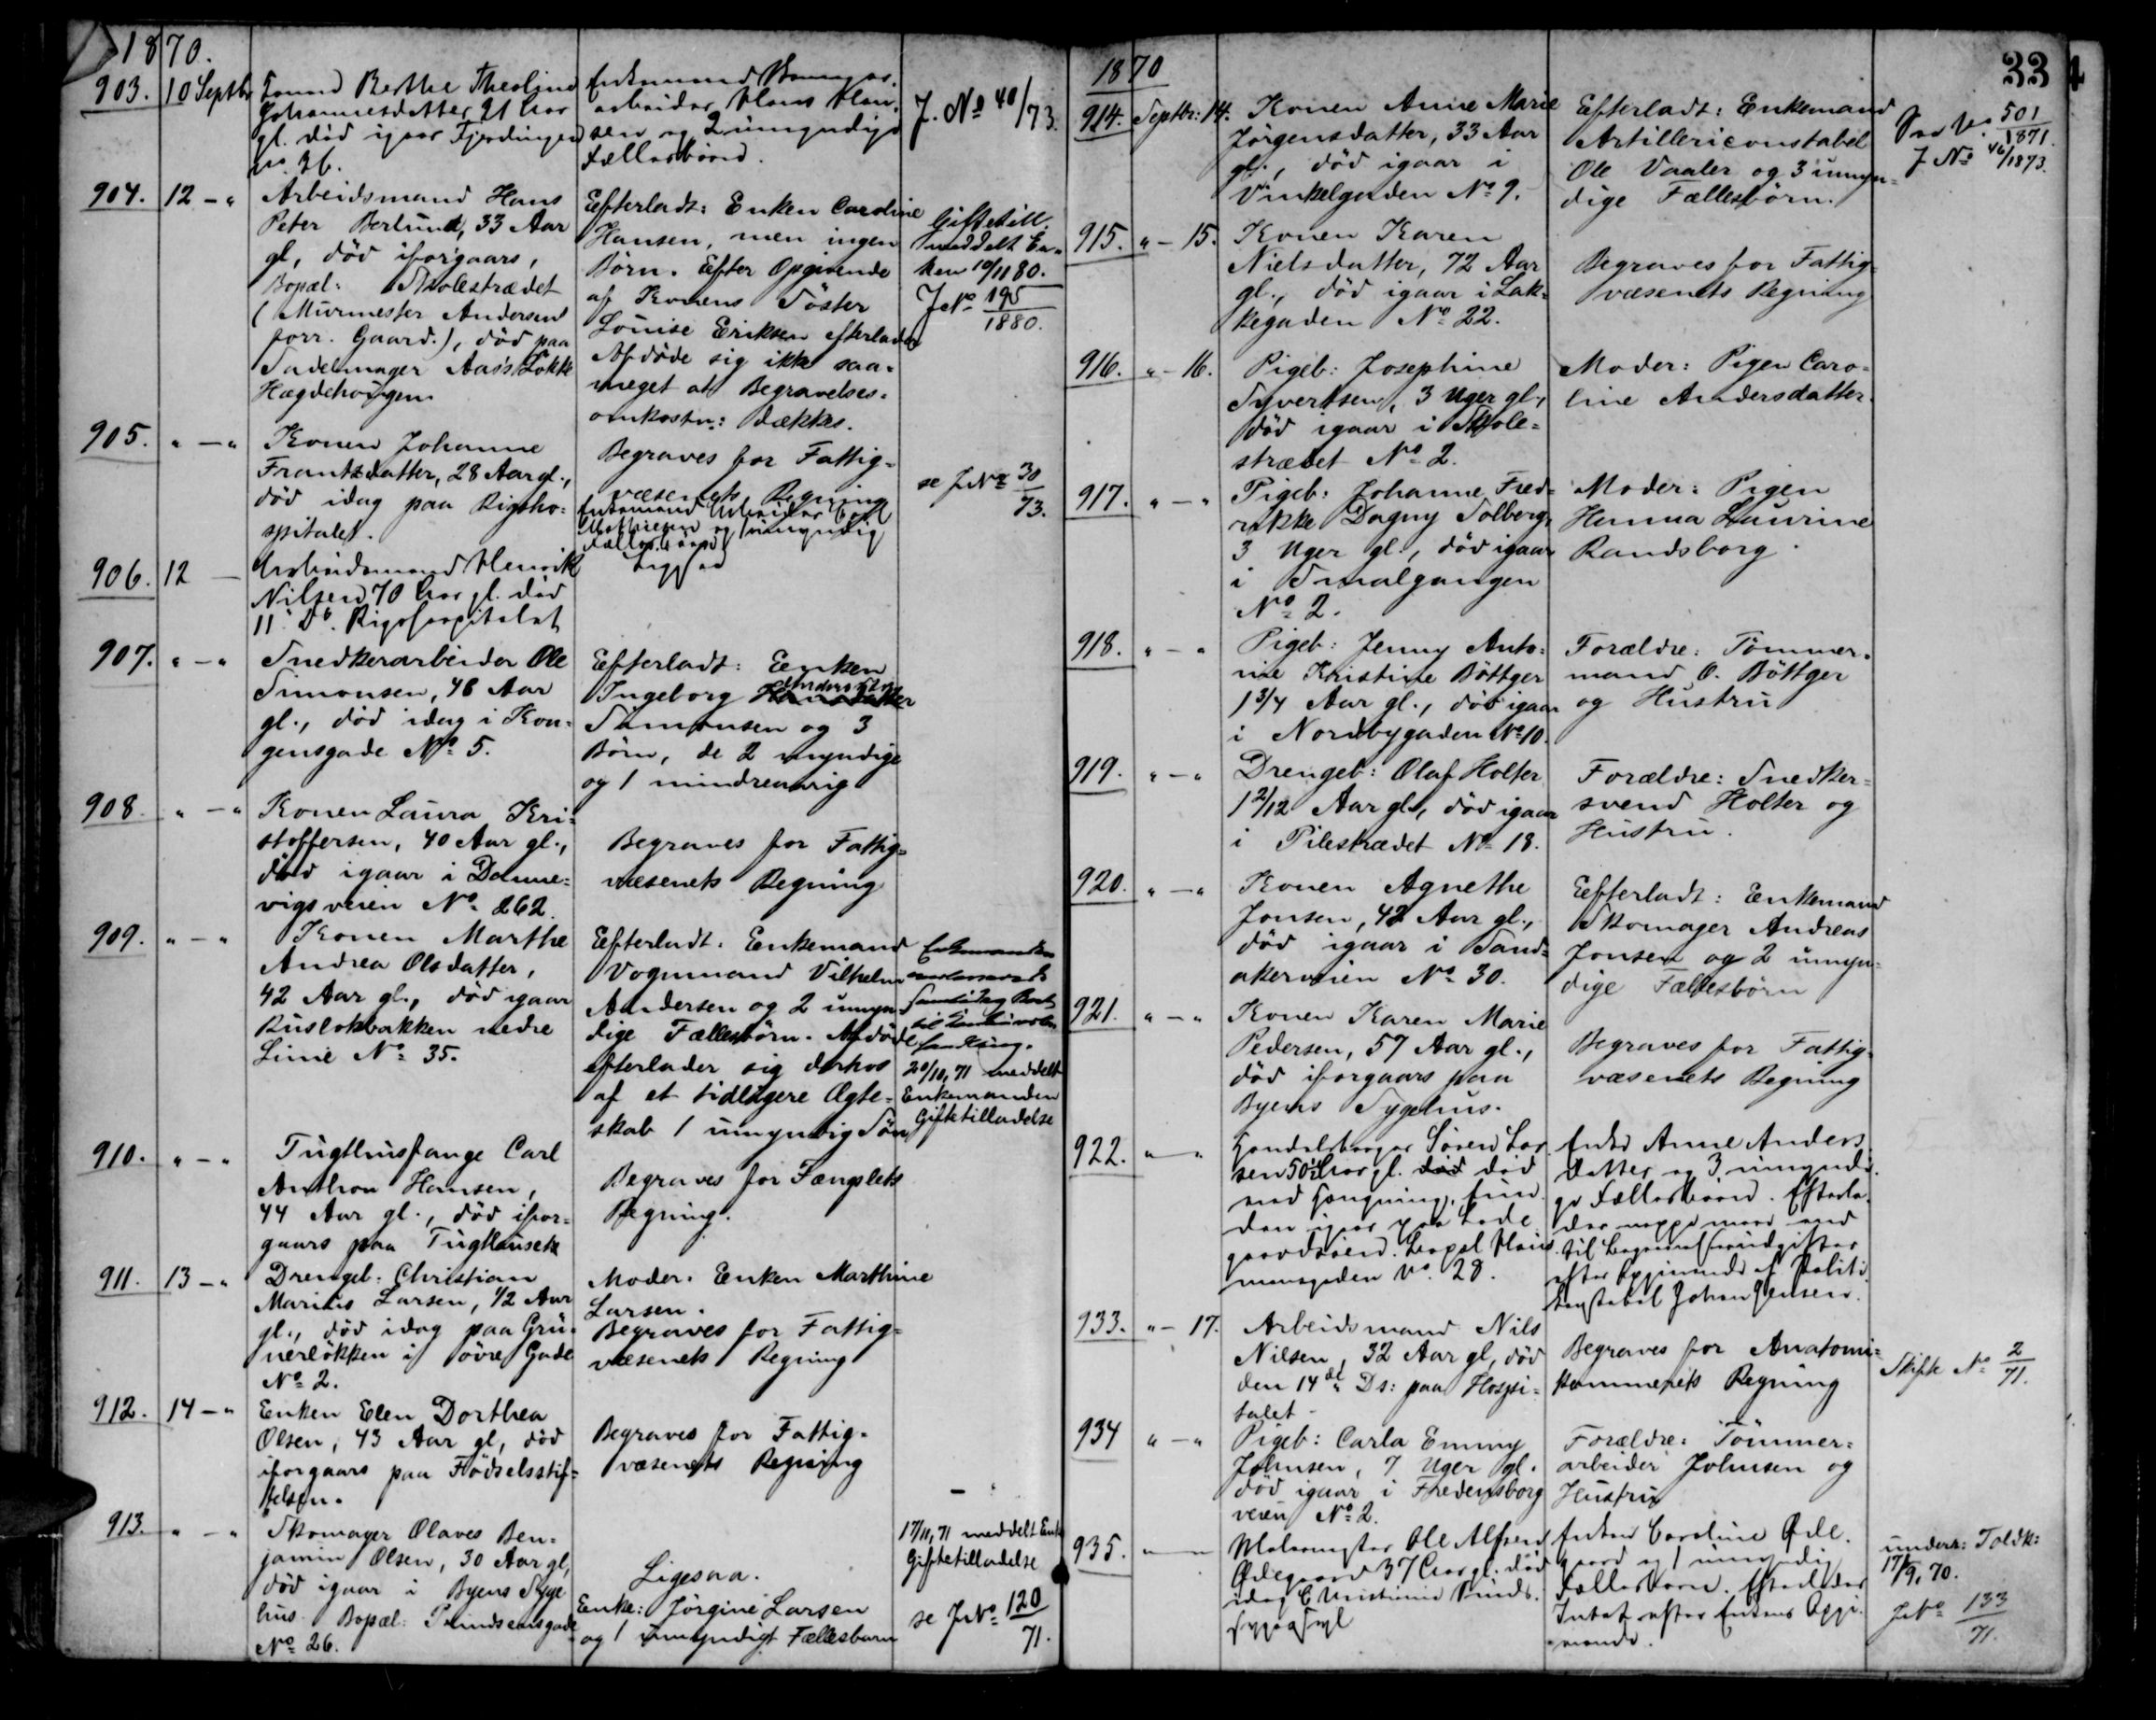 1870.
903. 10 Septbr
Berthe Theoline
Johannesdatter 21 Aar
gl. död igaar Fjerdingen
No 36.
Enkemand
arbeider Hans Han-
sen og 2 umyndige
Fællesbörn.
J. No 40/73.
904. 12 - "
Arbeidsmand Hans
Peter Berlund, 33 Aar
gl, död iforgaars,
Bopæl: Skolestrædet
(Murmester Andersens
forr. Gaard.), död paa
Sadelmager Aas's Lökke
Hægdehougen
Efterladt: Enken Caroline
Hansen, men ingen
Börn. Efter Opgivende
af Konens Söster
Louise Eriksen efterlader
Afdöde sig ikke saa-
meget at Begravelses-
omkostn: dækkes.
Giftetill.
meddelt En-
ken 10/11 80.
J No 195/1880.
905. " - "
Konen Johanne
Frantzdatter, 28 Aar gl.,
död idag paa Rigsho-
spitalet.
Begraves for Fattig-
væsenets Regning
Enkemand Arbeider Carl
Mathiesen og 1 umyndig
Fællesbarn
se J No 30/73.
906. 12 -
Arbeidsmand Henrik
Nilsen 70 Aar gl. död
11 Ds. Rigshospitalet
Ligesaa
907. " - "
Snedkerarbeider Ole
Simonsen, 48 Aar
gl., död idag i Kon-
gensgade No 5.
Efterladt: Enken
Ingeborg
Simonsen og 3
Börn, de 2 myndige
og 1 mindreaarig
908. " - "
Konen Laura Kri-
stoffersen, 40 Aar gl.,
död igaar i Damme-
vigsveien No 262.
Begraves for Fattig-
væsenets Regning
909. " - "
Konen Marthe
Andrea Olsdatter,
42 Aar gl., död igaar
Ruslökbakken nedre
Linie No 35.
Efterladt: Enkemand
Vognmand Vilhelm
Andersen og 2 umyn-
dige Fællesbörn. Afdöde
efterlader sig derhos
af et tidligere Ægte-
skab 1 umyndig Sön
20/10, 71 meddelt
Enkemanden
Giftetilladelse
910. " - "
Tugthusfange Carl
Anthon Hansen,
44 Aar gl., död ifor-
gaars paa Tugthuset
Begraves for Fængslets
Regning.
911. 13 - "
Drengeb: Christian
Marius Larsen, 1/2 Aar
gl., död idag paa Grü-
nerlökken i övre Gade
No 2.
Moder: Enken Marthine
Larsen.
Begraves for Fattig-
væsenets Regning
912. 14 - "
Enken Elen Dorthea
Olsen, 43 Aar gl, död
iforgaars paa Födselsstif-
telsen.
Begraves for Fattig-
væsenets Regning
913. " - "
Skomager Olaves Ben-
jamin Olsen, 30 Aar gl,
död igaar i Byens Syge-
hus. Bopæl: Prindsensgade
No 26.
Ligesaa.
Enke: Jörgine Larsen
og 1 umyndigt Fællesbarn
17/11, 71 meddelt Enk
Giftetilladelse
se J No 120/71.
1870
33
4
914. Septbr: 14.
Konen Anne Marie
Jörgensdatter, 33 Aar
gl., död igaar i
Vinkelgaden No 9.
Efterladt: Enkemand
Artillericonstabel
Ole Vaaler og 3 umyn-
dige Fællesbörn.
501/1871.
J No 46/1873.
915. " - 15.
Konen Karen
Nielsdatter, 72 Aar
gl., död igaar i Lak-
kegaden No 22.
Begraves for Fattig-
væsenets Regning
916. " - 16.
Pigeb: Josephine
Syvertsen, 3 Uger gl.,
död igaar i Skole-
strædet No 2.
Moder: Pigen Caro-
line Andersdatter.
917. " - "
Pigeb: Johanne Fred-
rikke Dagny Solberg,
3 Uger gl., död igaar
i Smalgangen
No 2.
Moder: Pigen
Hanna Laurine
Randsborg.
918. " - "
Pigeb: Jenny Anto-
nie Kristine Böttger
1 3/4 Aar gl., död igaar
i Nordbygaden No 10.
Forældre: Tömmer-
mand O. Böttger
og Hustru
919. " - "
Drengeb: Olaf Holter
1 2/12 Aar gl, död igaar
i Pilestrædet No 18.
Forældre: Snedker-
svend Holter og
Hustru.
920. " - "
Konen Agnethe
Jonsen, 42 Aar gl.,
död igaar i Sand-
akerveien No 30.
Efterladt: Enkemand
Skomager Andreas
Jonsen og 2 umyn-
dige Fællesbörn
921. " - "
Konen Karen Marie
Pedersen, 57 Aar gl.,
död iforgaars paa
Byens Sygehus.
Begraves for Fattig-
væsenets Regning
922. " - "
Handelsborger Sören Lar-
sen 50 Aar gl. död död
ved Hængning, fun-
den igaar paa Lade-
gaardsöen. Bopæl Haus-
mansgaden No. 28.
Enke Anne Anders-
datter og 3 umyndi-
ge Fællesbörn. Efterla-
der neppe mere end
til Begravelsesudgifter
efter Opgivende af Politi-
konstabel Johan Jensen.
933. " - 17.
Arbeidsmand Nils
Nilsen, 32 Aar gl, död
den 14de Ds: paa Hospi-
talet.
Begraves for Anatomi-
kammerets Regning
Skifte No 2/71.
934 " - "
Pigeb: Carla Emmy
Johnsen, 7 Uger gl.
död igaar i Fredensborg
veien No 2.
Forældre: Tömmer-
arbeider Johnsen og
Hustru
935. " - "
Malermester Ole Alfsen
Ödegaard 37 Aar gl. död
idag Christiania Sinds-
sygeasyl
Enken Caroline Öde-
gaard og 1 umyndig
Fællesbarn. Efterlader
Intet efter Enkens Opgi-
vende.
underr: Toldk:
17/9, 70.
J No 133/71.